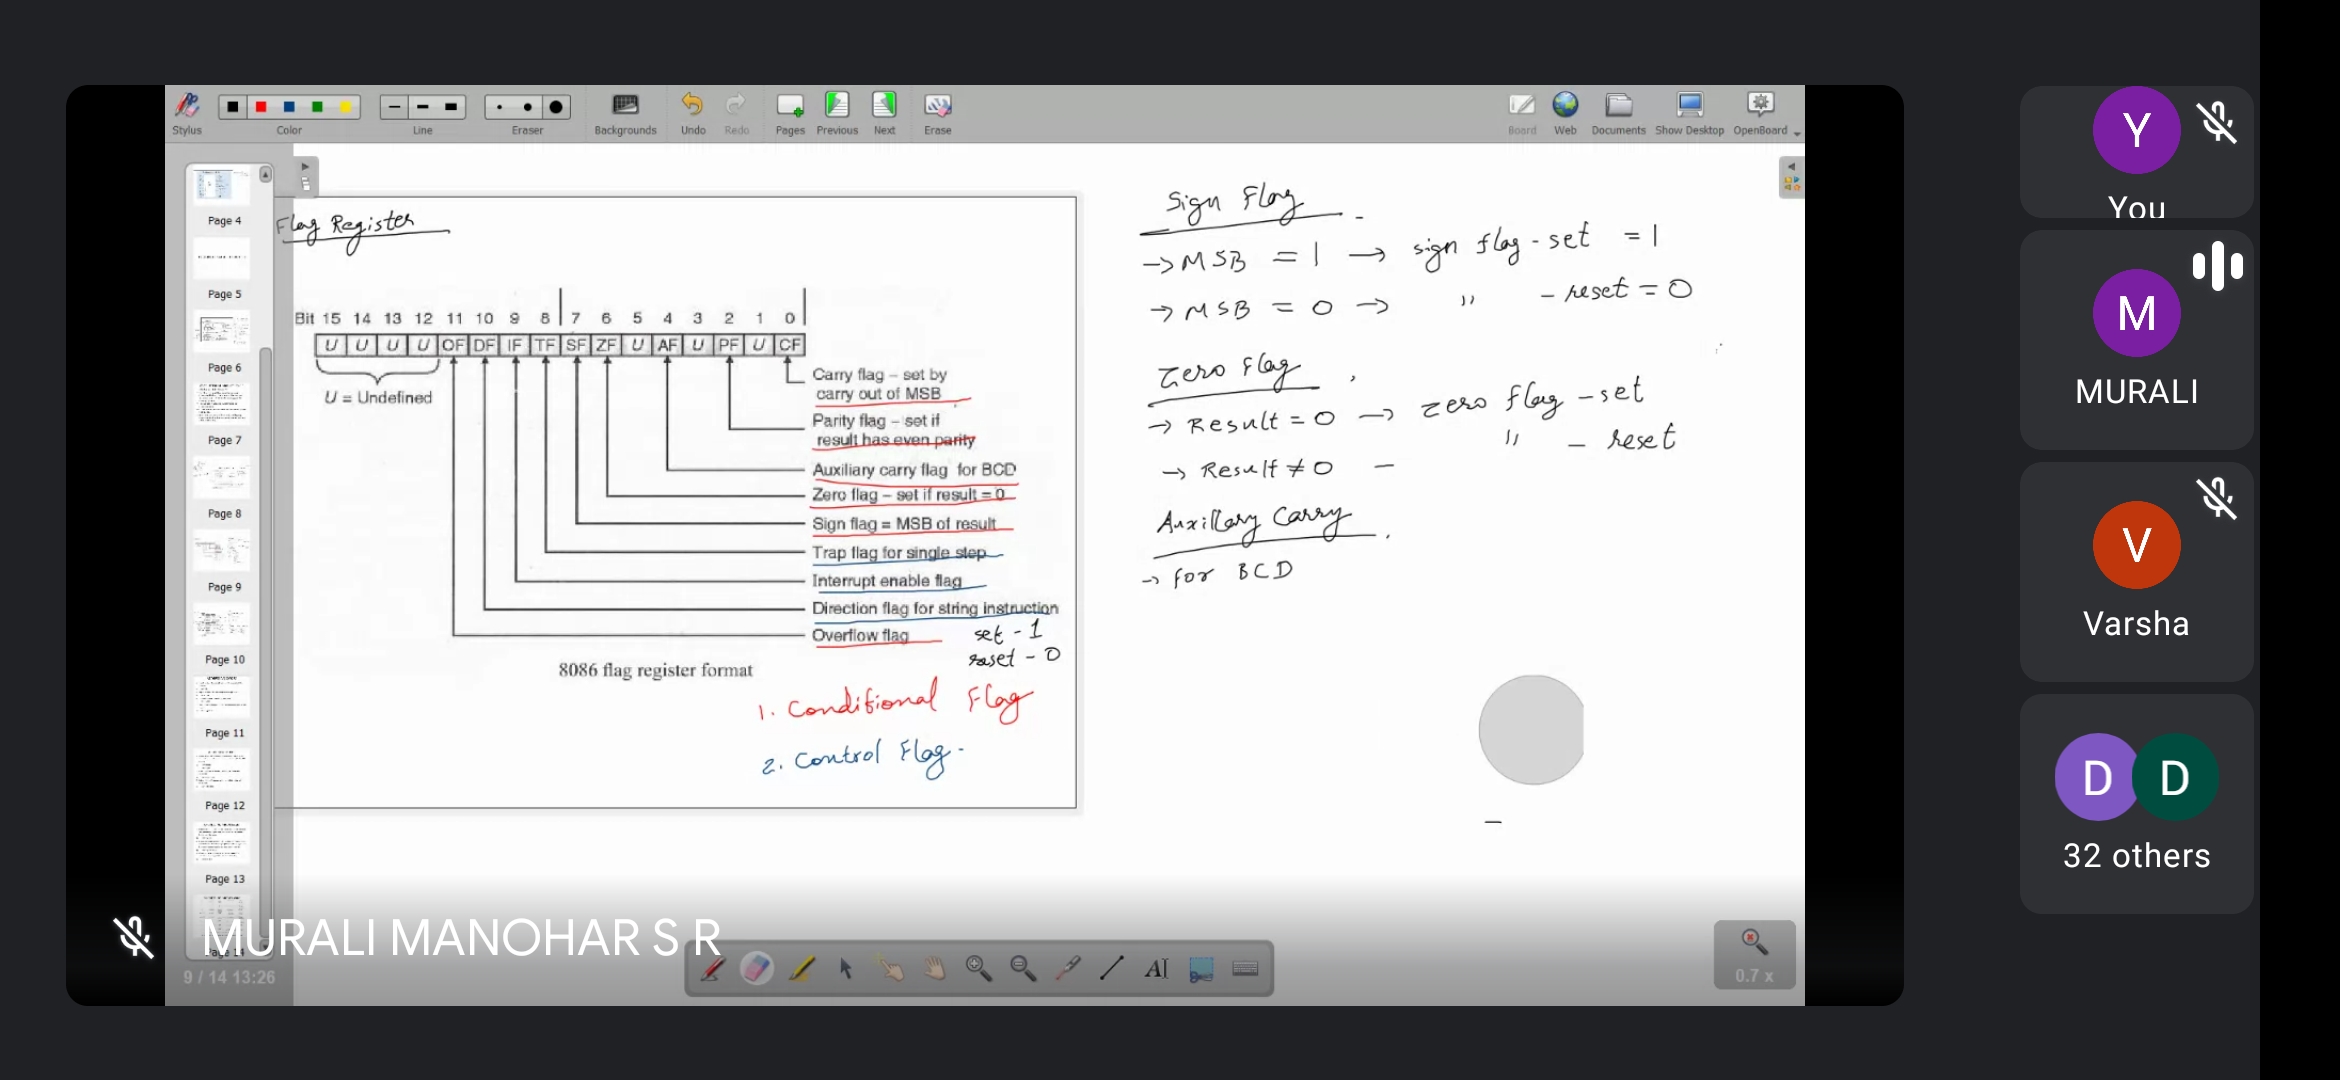 Stylus
Color
Line
Eraser
Backgrounds
Undo
Redo
Pages
Previous
Next
Erase
Board
Web
Documents
Show Desktop
OpenBoard
Page 4
Page 5
Page 6
Page 7
Page 8
Page 9
Page 10
Page 11
Page 12
Page 13
Page 14
9 / 14 13:26
Flag Register
Bit 15 14 13 12 11 10 9 8 7 6 5 4 3 2 1 0
U U U U OF DF IF TF SF ZF U AF U PF U CF
U = Undefined
Carry flag – set by
carry out of MSB
Parity flag – set if
result has even parity
Auxiliary carry flag for BCD
Zero flag – set if result = 0
Sign flag = MSB of result
Trap flag for single step
Interrupt enable flag
Direction flag for string instruction
Overflow flag
set - 1
reset - 0
8086 flag register format
1. Conditional Flag
2. Control Flag -
Sign Flag
→ MSB = 1 → sign flag - set = 1
→ MSB = 0 → " - reset = 0
Zero Flag
→ Result = 0 → zero flag - set
" - reset
→ Result ≠ 0 -
Auxillary Carry
→ for BCD
AI
0.7 x
MURALI MANOHAR S R
Y
You
M
MURALI
V
Varsha
D D
32 others